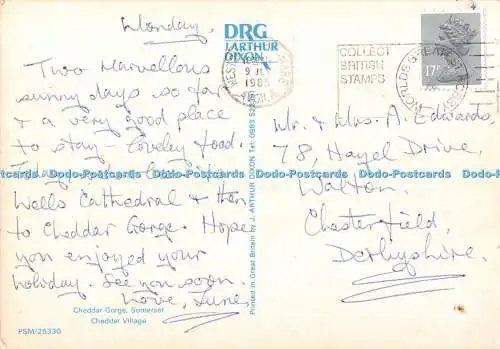 Monday.
Two Marvellous
sunny days so far
& a very good place
to stay - lovely food.
Wells Cathedral & then
to Cheddar Gorge. Hope
you enjoyed your
holiday. See you soon.
Love, June.
Cheddar Gorge, Somerset
Cheddar Village
PSM/25330
DRG
J.ARTHUR
DIXON
Printed in Great Britain by J. ARTHUR DIXON Tel: 0983
9 JLY
1985
COLLECT
BRITISH
STAMPS
WORLDS GREATEST HOBBY
17P
Mr. & Mrs. A. Edwards,
78, Hazel Drive,
Walton,
Chesterfield,
Derbyshire.
Dodo-Postcards Dodo-Postcards Dodo-Postcards Dodo-Postcards Dodo-Postcards Dodo-Postcards